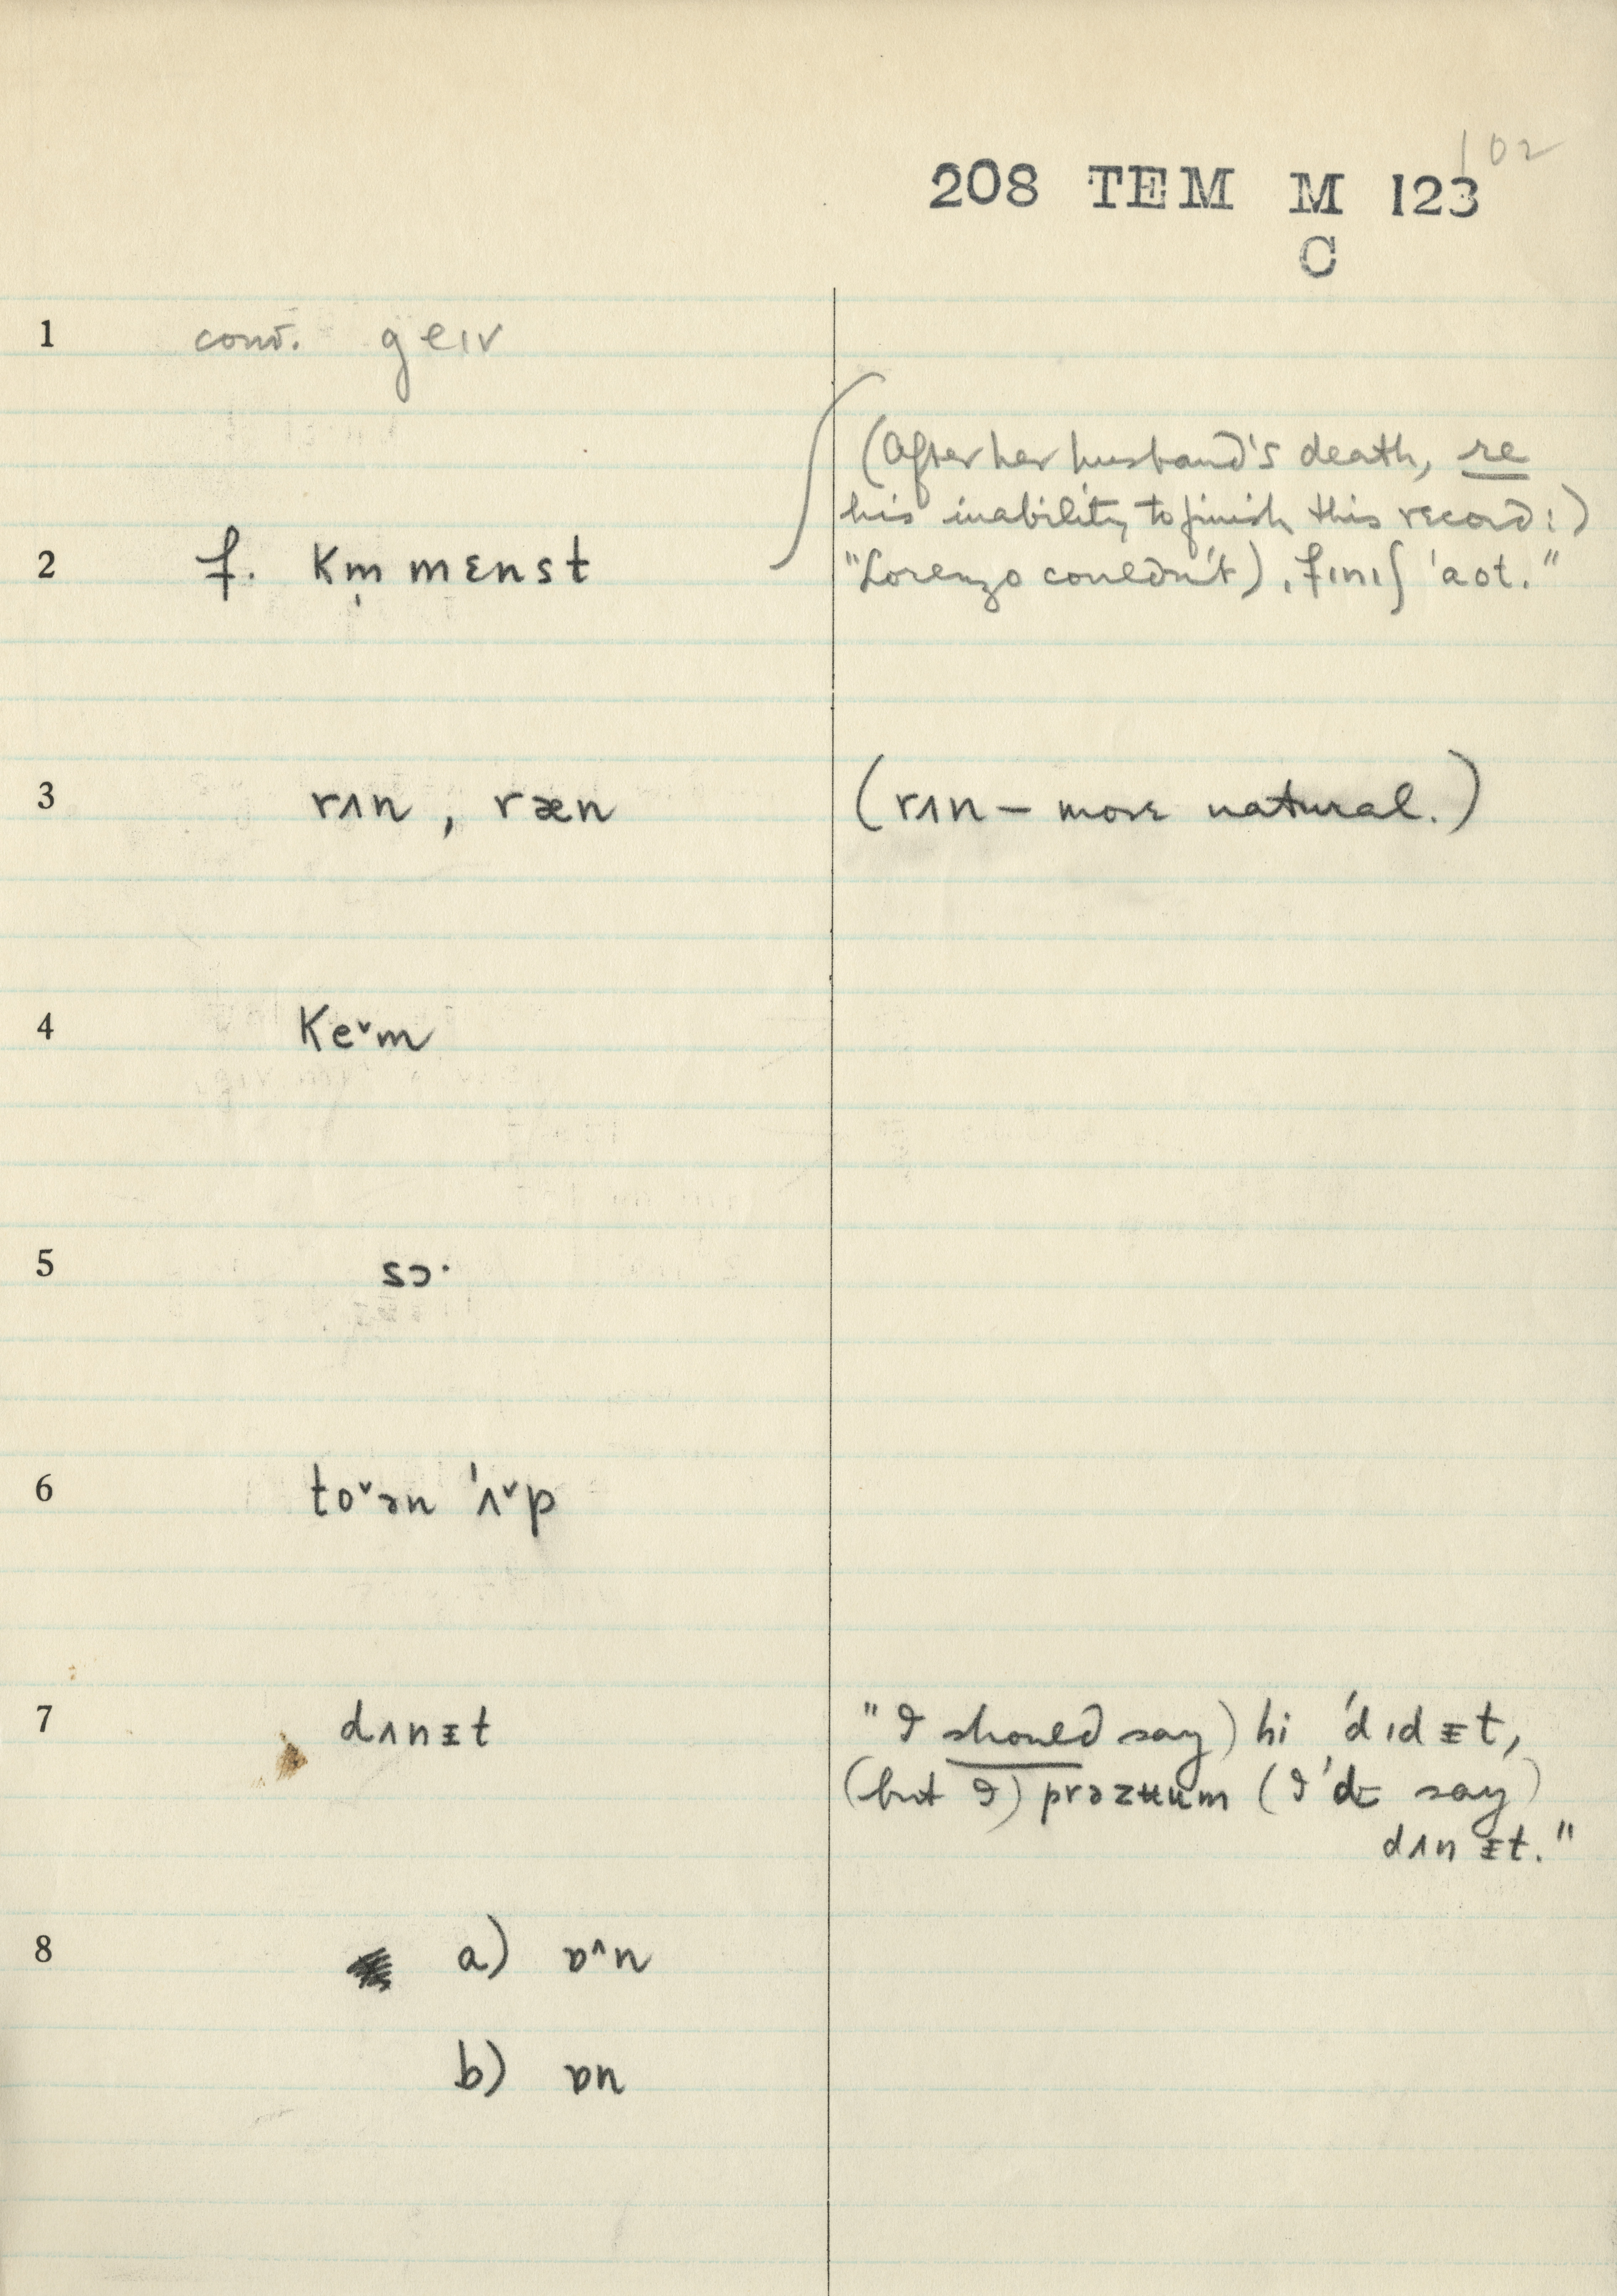 102
208 TEM M 123
C
1 conv. geɪv
(After her husband's death, re
his inability to finish this record:)
2 f. km̩mɛnst "Lorenzo couldn't) ˌfɪnɪʃ ˈaot."
3 rʌn, ræn (rʌn – more natural.)
4 keˇm
5 sɔ·
6 toˇən ˈʌˇp
7 dʌnɪ̵t "I should say) hi ˈdɪdɪ̵t,
(but I) prəzʉum (I'd say)
dʌnɪ̵t."
8 a) ɒ^n
b) ɒn